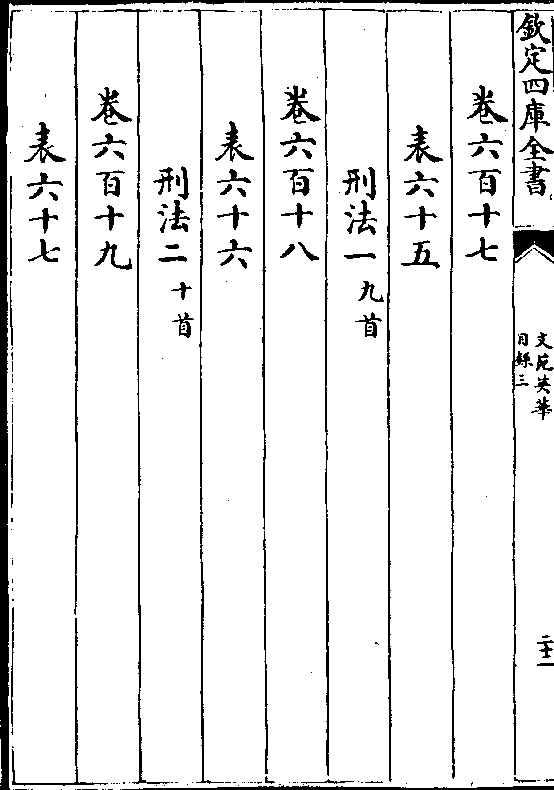 欽定四庫全書
文苑英華
目錄三
卷六百十七
表六十五
刑法一九首
卷六百十八
表六十六
刑法二十首
卷六百十九
表六十七